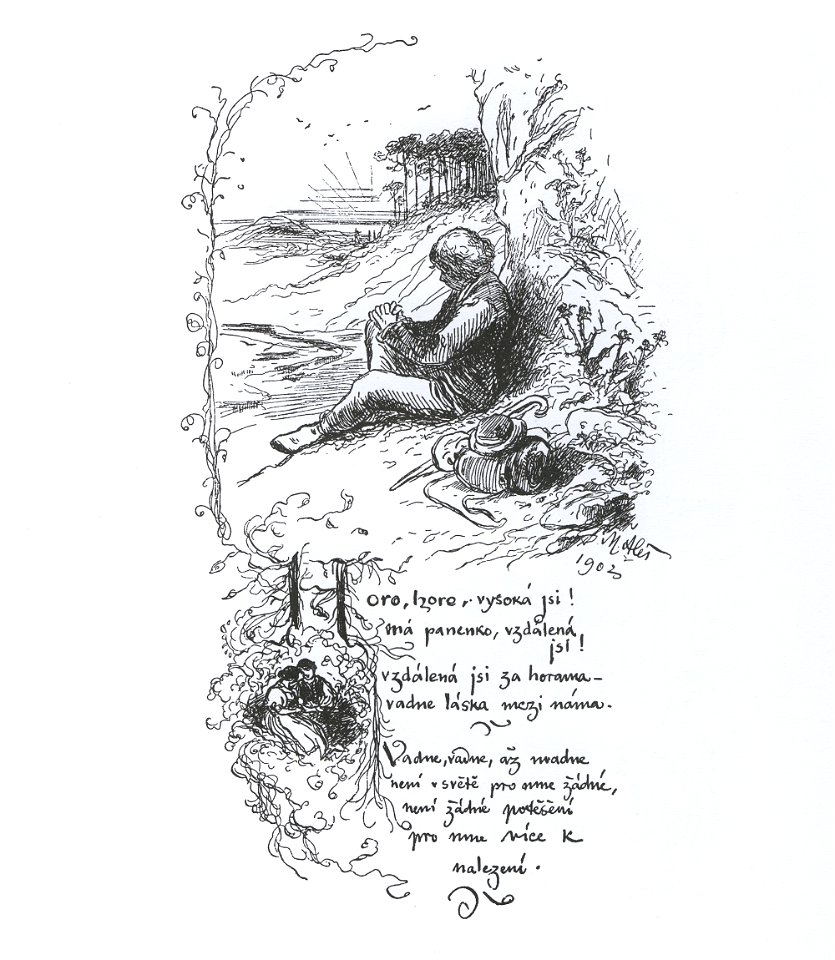 M. Aleš
1903
Horo, hore, vysoká jsi!
má panenko, vzdálená
jsi!
vzdálená jsi za horama–
vadne láska mezi náma.
Vadne, vadne, až uvadne
není v světě pro mne žádné,
není žádné potěšení
pro mne více k
nalezení.